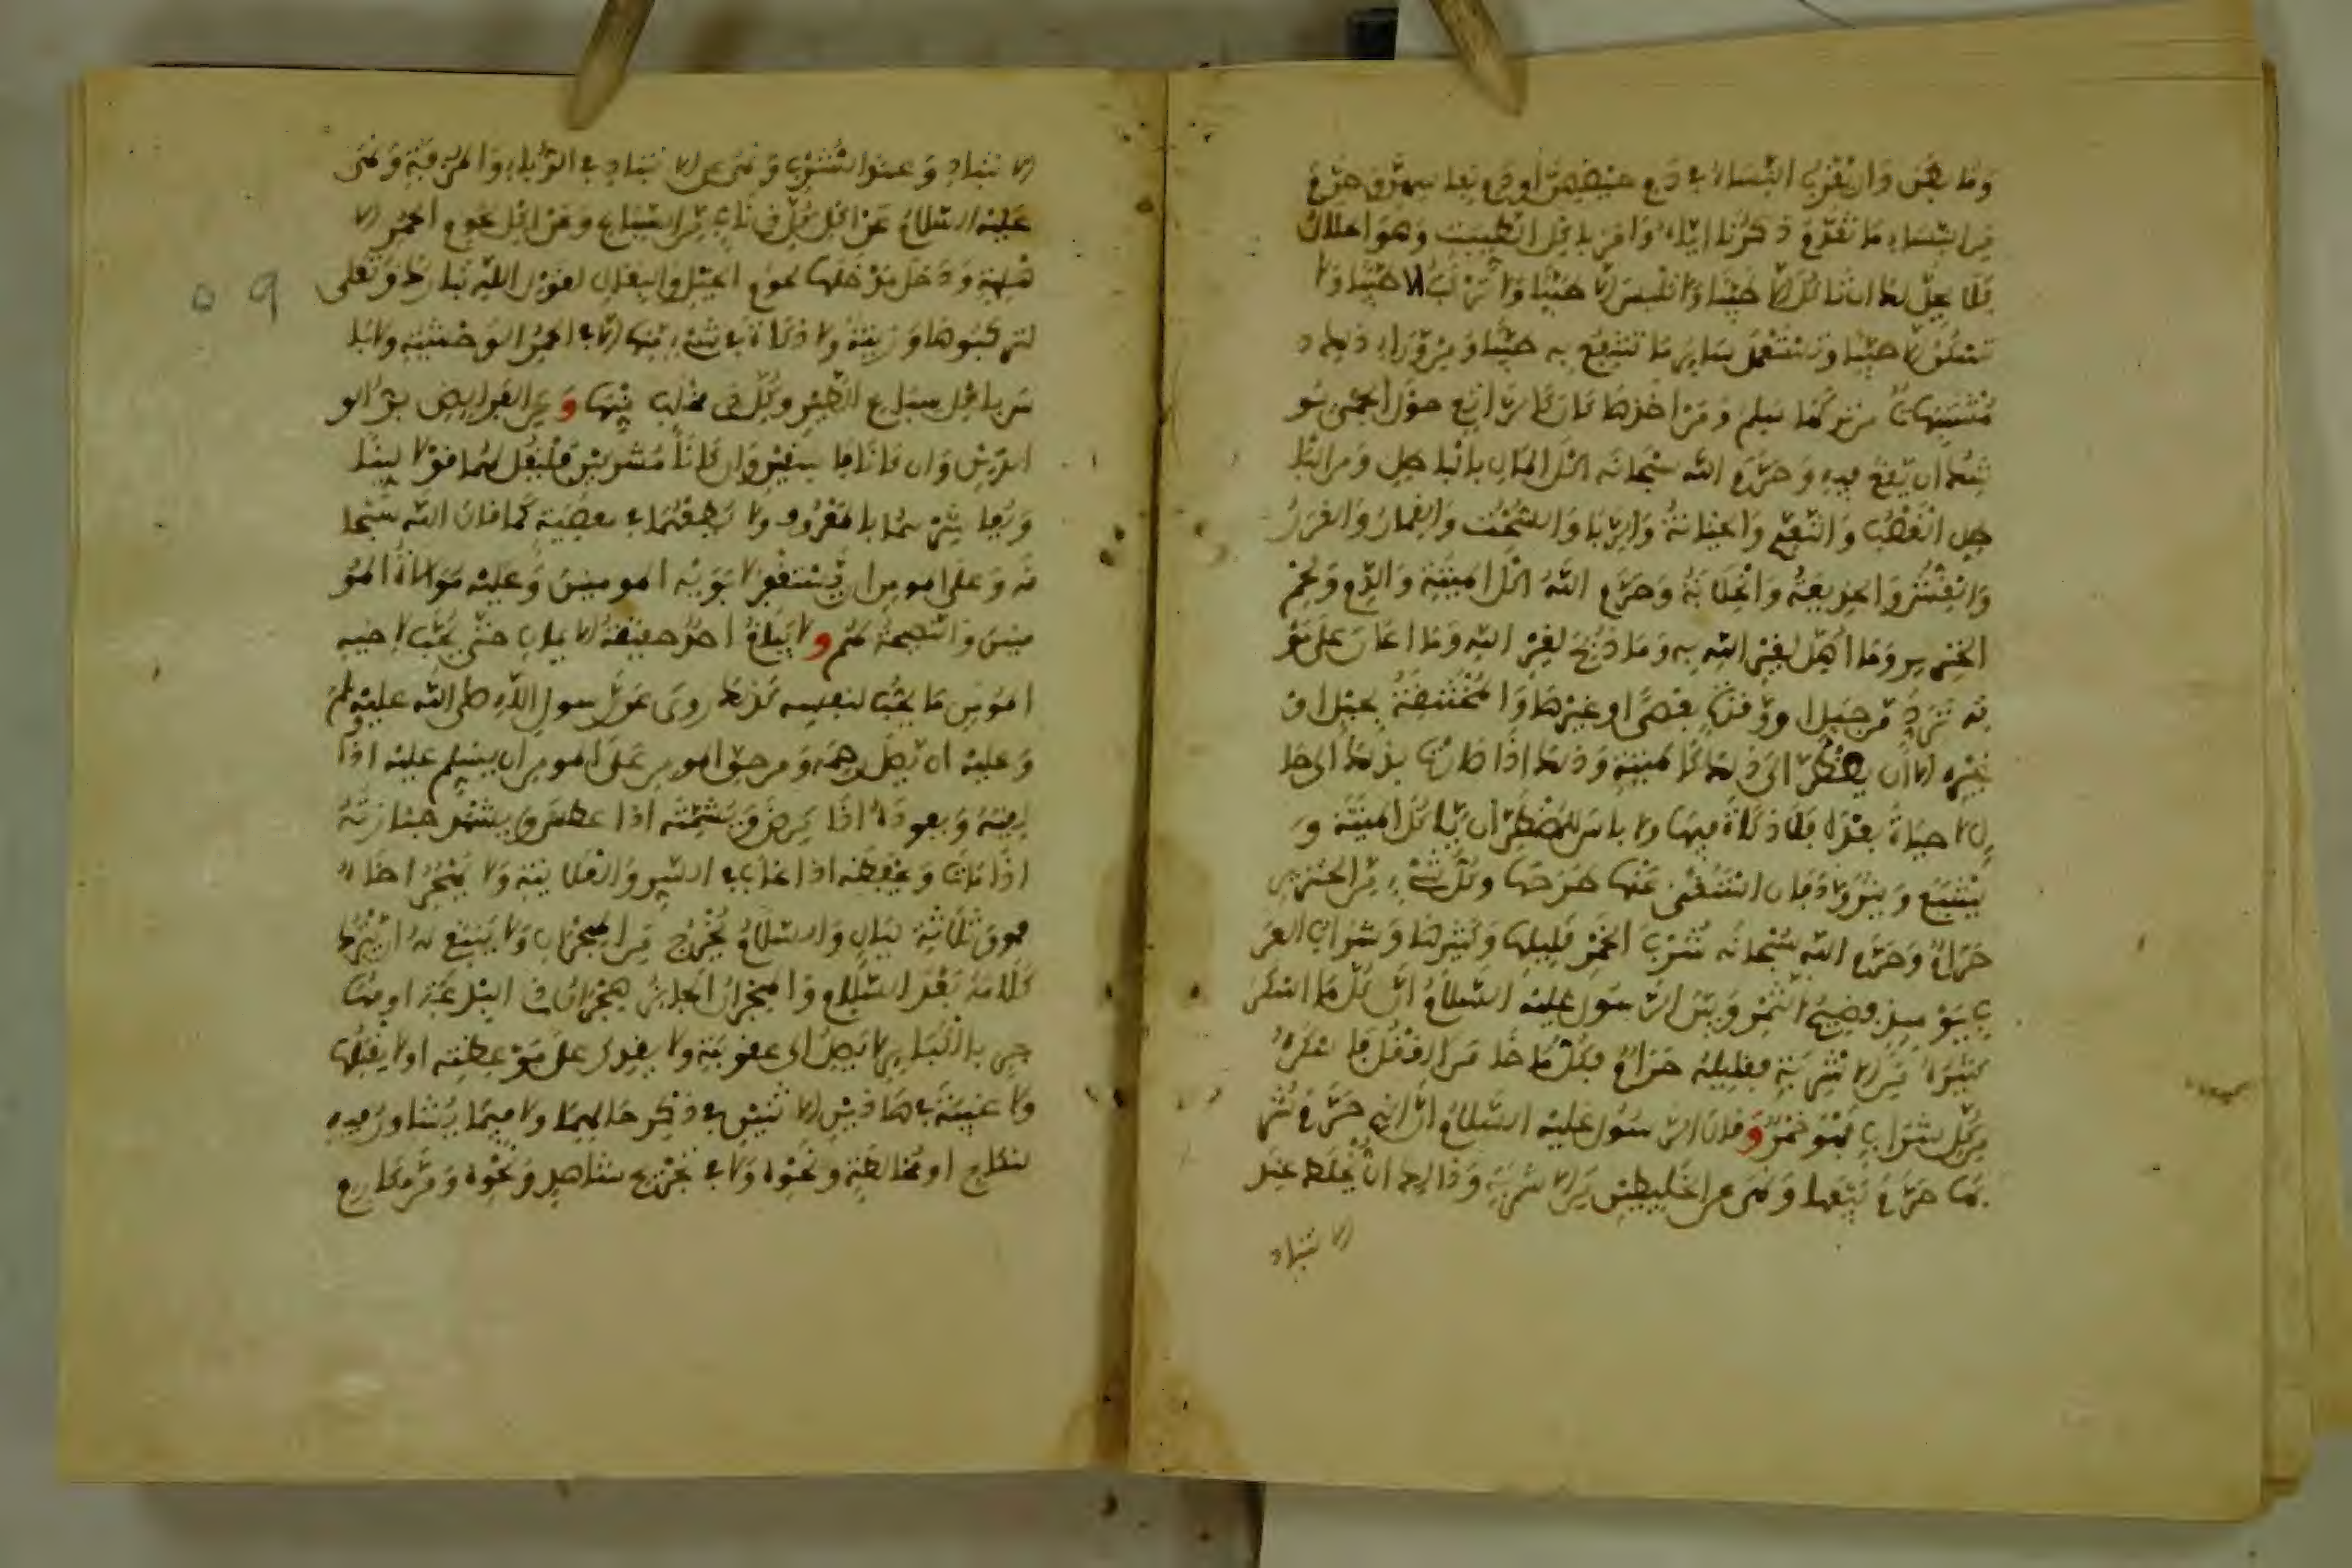 وما بطن وان يقرب النساء في دم حيضهن او دم نفاسهن وحرم
من النساء ما تقدم ذكرنا اياه وامر باكل الطيب وهو الحلال
فلا يحل لك ان تاكل الا طيبا ولا تلبس الا طيبا ولا تركب الا طيبا ولا
تسكن الا طيبا وتستعمل ساير ما تنتفع به طيبا ومن وراء ذلك
مشتبهات من تركها سلم ومن اخذها كان كالراتع حول الحمى يو
شك ان يقع فيه وحرم الله سبحانه اكل المال بالباطل ومن البا
طل الغصب والتعدي والخيانة والربا والسحت والقمار والغرر
والغش والخديعة والخلابة وحرم الله اكل الميتة والدم ولحم
الخنزير وما اهل لغير الله به وما ذبح لغير الله وما اعان على مو
ته ترد من جبل او وقذة بعصى او غيرها والمنخنقة بحبل او
غيره الا ان يضطر الى ذلك كالميتة وذلك اذا صارت بذلك الى حا
ل لا حياة بعده فلا ذكاة فيها ولا باس للمضطر ان ياكل الميتة و
يشبع ويتزود فان استغنى عنها طرحها وكل شيء من الخنزير
حرام وحرم الله سبحانه شرب الخمر قليلها وكثيرها وشراب العر
ب يوميذ فضيخ التمر وبين الرسول عليه السلام ان كل ما اسكر
كثيره من الاشربة فقليله حرام وكل ما خامر العقل فاسكره
من كل شراب فهو خمر وقال الرسول عليه السلام ان الذي حرم شر
بها حرم بيعها ونهى عن الخليطين من الاشربة وذالك ان يخلط عند
الانتباذ
الانتباذ وعند الشرب ونهى عن الانتباذ في الدباء والمزفت ونهى
عليه السلام عن اكل كل ذي ناب من السباع وعن اكل لحوم الحمر الا
هلية ودخل مدخلها لحوم الخيل والبغال لقول الله تبارك وتعلى
لتركبوها وزينة ولا ذكاة في شيء منها الا في الحمر الوحشية ولا با
س باكل سباع الطير وكل ذي مخلب منها ومن الفرايض بر الو
الدين وان كانا فاسقين وان كانا مشركين فليقل لهما قولا لينا
وليعاشرهما بالمعروف ولا يطعهما في معصية كما قال الله سبحا
نه وعلى المومن ان يستغفر لابويه المومنين وعليه موالاة المو
منين والنصيحة لهم ولا يبلغ احد حقيقة الايمان حتى يحب لاخيه
المومن ما يحب لنفسه كذلك روي عن رسول الله صلى الله عليه وسلم
وعليه ان يصل رحمه ومن حق المومن على المومن ان يسلم عليه اذا
لقيه ويعوده اذا مرض ويشمته اذا عطس ويشهد جنازته
اذا مات ويحفظه اذا غاب في السر والعلانية ولا يهجر اخاه
فوق ثلاثة ليال والسلام يخرج من الهجران ولا ينبغي له ان يترك
كلامه بعد السلام والهجران الجايز هجران ذي البدعة او متجا
هر بالكباير لا يصل الى عقوبته ولا يقدر على موعظته او لا يقبلها
ولا غيبة في هاذين الاثنين في ذكر حالهما ولا فيما يشاور فيه
لنكاح او مخالطة ونحوه ولا في تجريح شاهد ونحوه ومن مكارم
٥٩